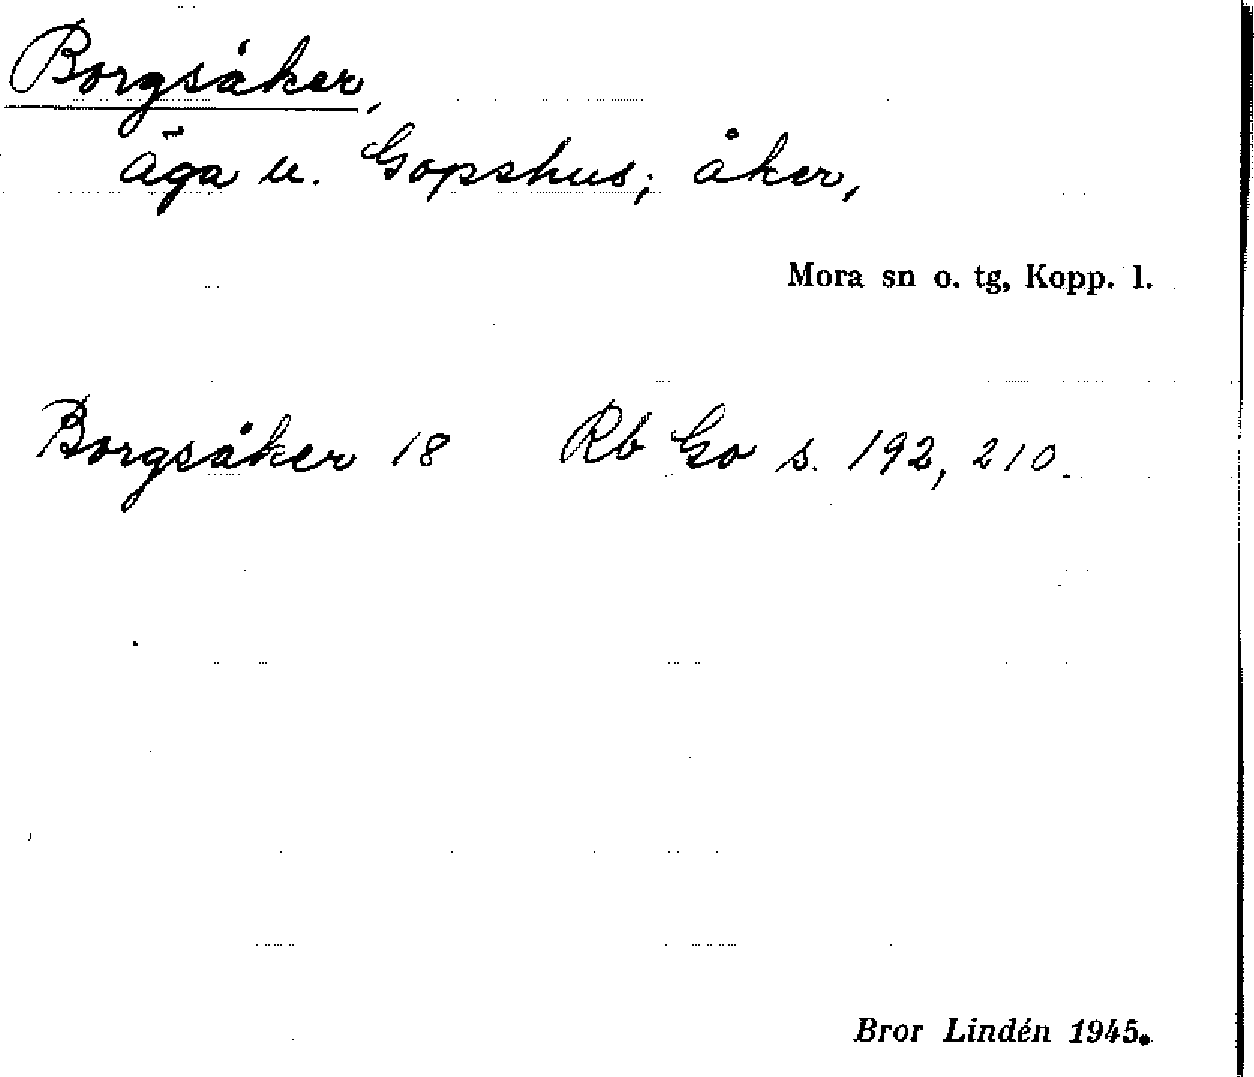 Borgsåker,
äga u. Gopshus; åker,
Mora sn o. tg, Kopp. l.
Borgsåker 18 Rb Go s. 192, 210.
Bror Lindén 1945.